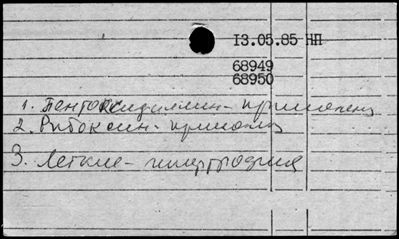 13.05.85 НП
68949
68950
1. Пентоксифиллин - применен
2. Рибоксин - примен
3. Легкие - гипертрофия